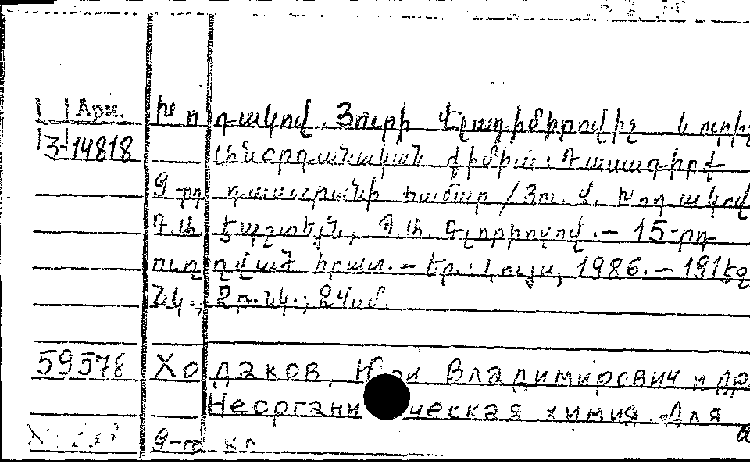 Арм. Խոդակով Յուրի Վլադիմիրովիչ և ուրիշ
3-14818 Անօրգանական քիմիա: Դասագիրք
9-րդ դասարանի համար / Յու. Վ. Խոդակով
Դ. Ա. Էպշտեյն, Պ. Ա. Գլորիոզով. – 15-րդ
ուղղված հրատ. – Եր.: Լույս, 1986. – 191 էջ
նկ., 2 թ. նկ.; 24 սմ.
59578 Ходаков, Юри Владимирович и др
Неорганическая химия. Для
9-го кл